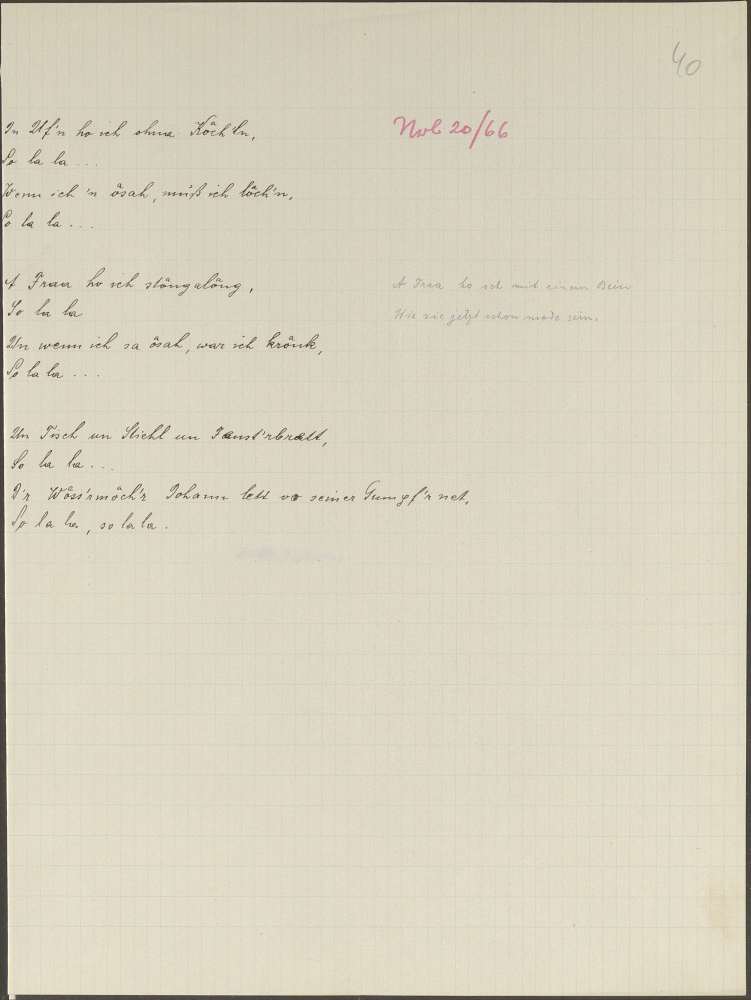 40
Nvb 20/66
In Uf'n ho ich ohna Kåch'ln,
So la la ...
Wenn ich 'n åsah, muß ich låch'n,
So la la ...
A Fraa ho ich stångalång,
So la la
Un wenn ich sa åsah, war ich krånk,
So la la ...
A Fraa ho ich mit einem Bein
Wie sie jetzt schon mode sein.
Un Tisch un Stiehl un Fanst'rbratt,
So la la ...
D'r Wåss'rmåch'r Johann lett vo seiner Gumpf'r net,
So la la, so la la.